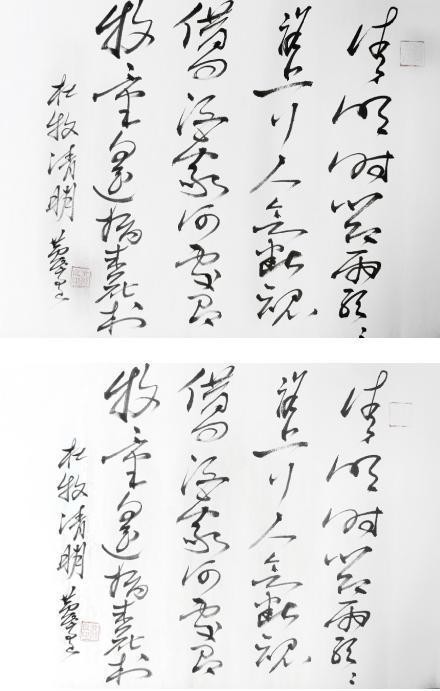 清明时节雨纷纷
路上行人欲断魂
借问酒家何处有
牧童遥指杏花村
杜牧清明
清明时节雨纷纷
路上行人欲断魂
借问酒家何处有
牧童遥指杏花村
杜牧清明